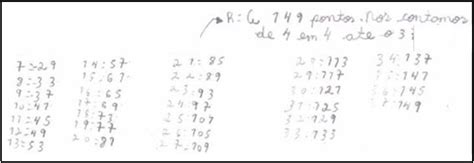 R: 149 pontos. Nos contamos
de 4 em 4 ate o
7:29 14:57 21:85 113 34:137
8:33 15:61 22:89 29:117 35:141
9:37 16:65 23:93 30:121 36:145
10:41 17:69 24:97 31:125 37:149
11:45 73 25:101 32:129
12:49 19:77 26:105 33:133
13:53 20:81 27:109